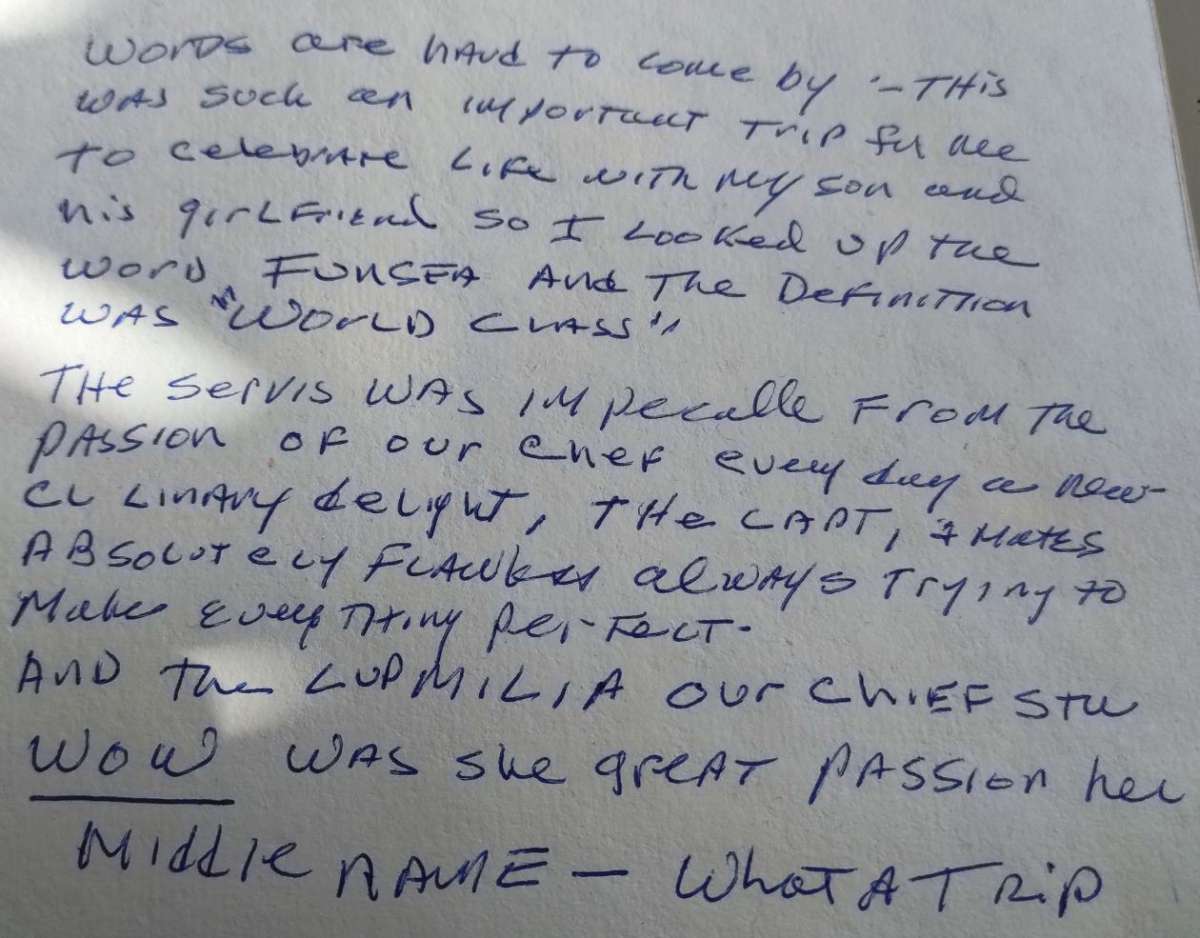 WORDS are hard to come by - THis
WAS Such an important Trip for me
TO celebrate Life with My son and
his girLFriend so I Looked up the
word FUNSEA And The Definittion
WAS "WORLD CLASS"
THe servis WAS IMpecable From The
PASSION OF our Chef every day a new
CuLinary delight, THe CAPT, & Mates
ABSOLUTELY FLAWless always Trying to
Make EveryTHing Perfect.
AND Then LUDMILIA our CHiEF STU
WOW WAS she greAT PASSION her
Middle NAME - WhaT A TRiP